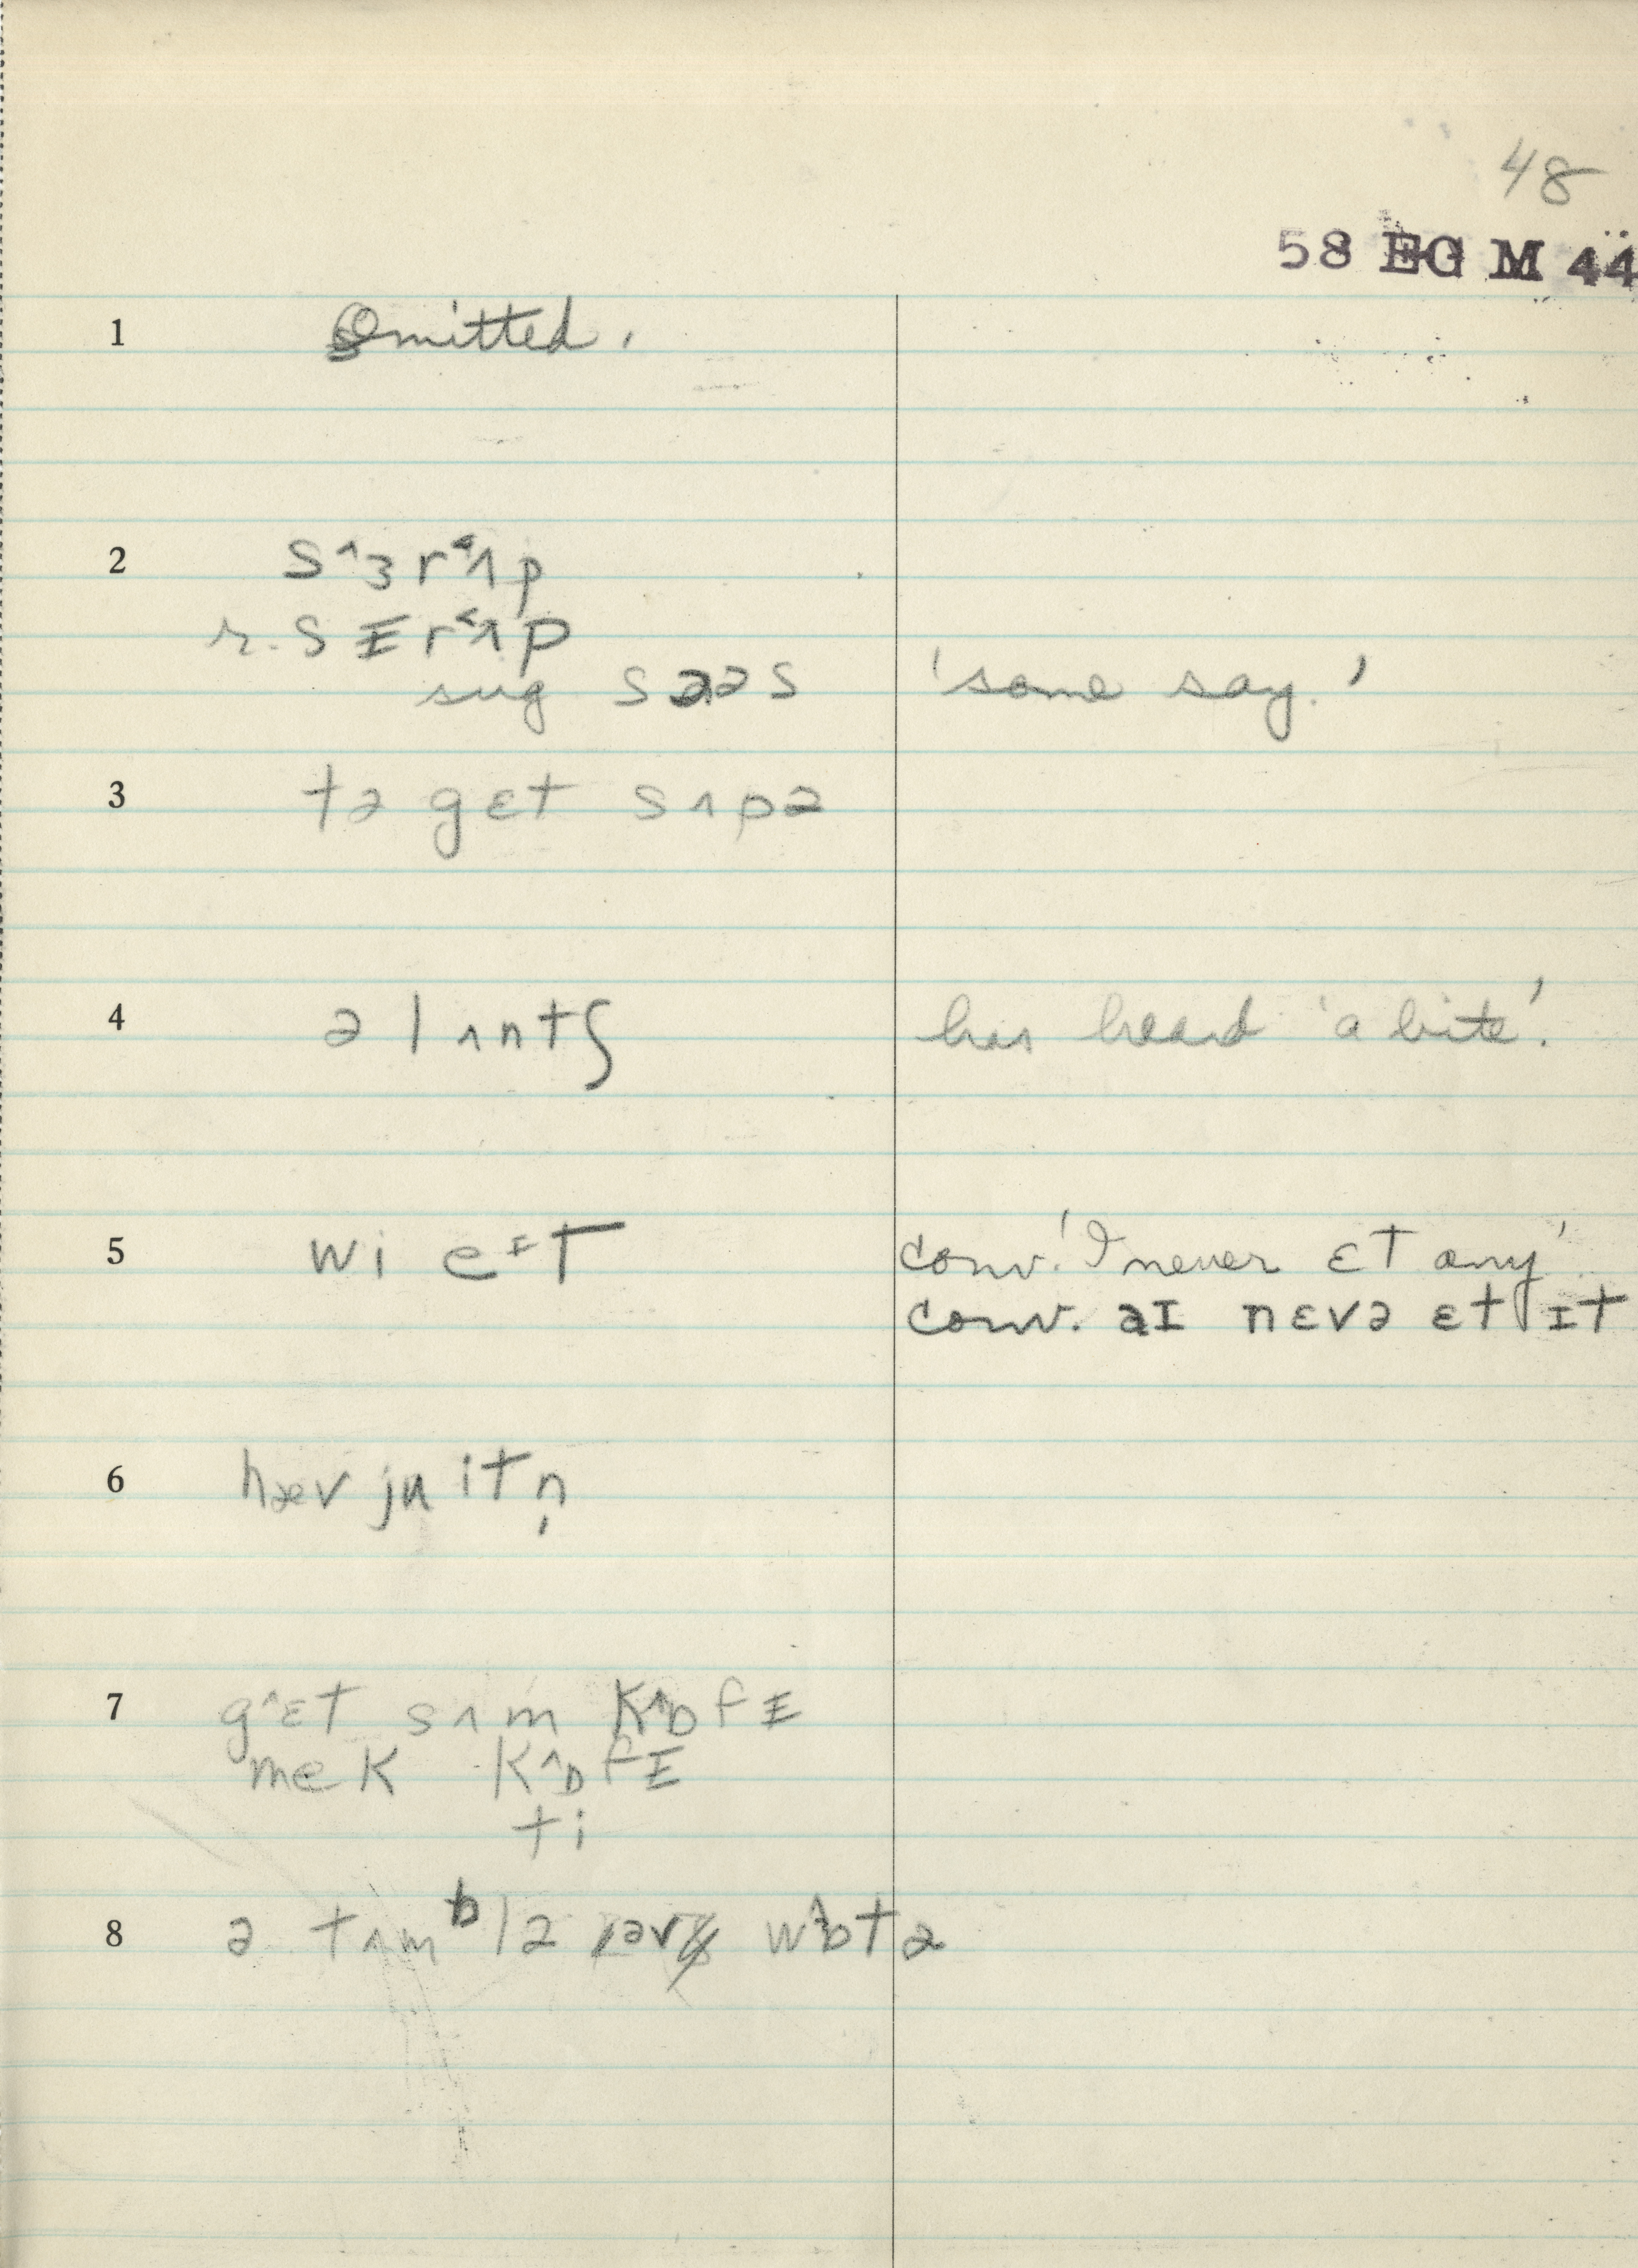 48
58 EG M 44
1 Omitted.
2 sˆɜr˂ʌp
r. sɪ̵r˂ʌp
sug sɑəs 'some say.'
3 tə gɛt sʌpə
4 ə lʌntʃ has heard 'a bite'.
5 wi eᶦt conv. 'I never ɛt any'
conv. aɪ nɛvə ɛt ɪt
6 hæv ju itn̩
7 gˆɛt sʌm kˆɒfɪ̵
mek kˆɒfɪ̵
ti
8 ə tʌmᵇlə wˆɒtə